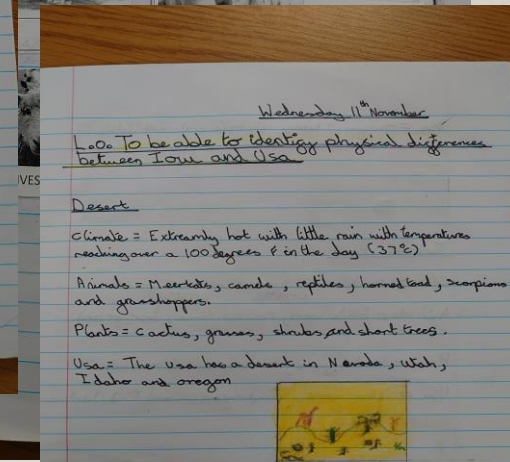 Wednesday 11th November
L.O. To be able to identify physical differences
between Iow and Usa
Desert
Climate = Extreamly hot with little rain with temperatures
reaching over a 100 degrees F in the day (37°c)
Animals = Meerkats, camels, reptiles, horned toad, scorpions
and grasshoppers.
Plants = cactus, grasses, shrubs and short trees.
Usa = The usa has a desert in Nevada, utah,
Idaho and oregon
IVES